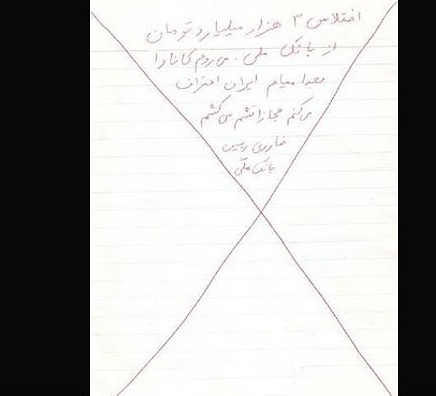 اختلاس ۳ هزار میلیارد تومان
از بانک ملی. می‌روم کانادا
بعدا میام ایران اعتراف
می‌کنم مجازاتشم می‌کشم
خاوری رییس
بانک ملی